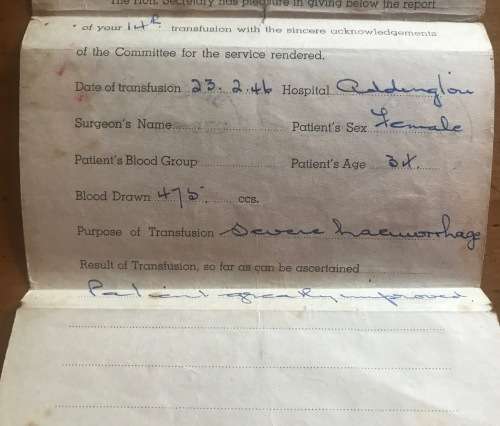 The Hon. Secretary has pleasure in giving below the report
of your 14th transfusion with the sincere acknowledgements
of the Committee for the service rendered.
Date of transfusion 23.2.46 Hospital Addington
Surgeon's Name Patient's Sex Female
Patient's Blood Group Patient's Age 34.
Blood Drawn 475. ccs.
Purpose of Transfusion Severe haemorrhage
Result of Transfusion, so far as can be ascertained
Patient greatly improved.